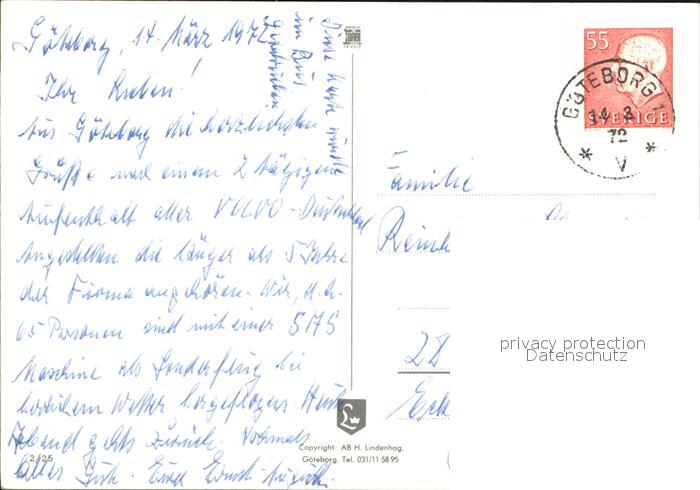 Göteborg, 14. März 1972
Ihr Lieben!
Aus Göteborg die herzlichsten
Grüße nach einem 2 tägigen
Aufenthalt aller VOLVO-Deutschland
Angestellten die länger als 5 Jahre
der Firma angehören. Wir, d.h.
65 Personen sind mit einer SAS
Maschine als Sonderflug bei
herrlichem Wetter hergeflogen. Heute
Abend gehts zurück. Nochmals
alles Gute. Euer Ernst-August
Diese Karte wurde
im Bus
geschrieben
2/25
Copyright: AB H. Lindenhag,
Göteborg. Tel. 031/11 58 95
55
SVERIGE
GÖTEBORG 1
14. 3.
72
* V *
Familie
privacy protection
Datenschutz